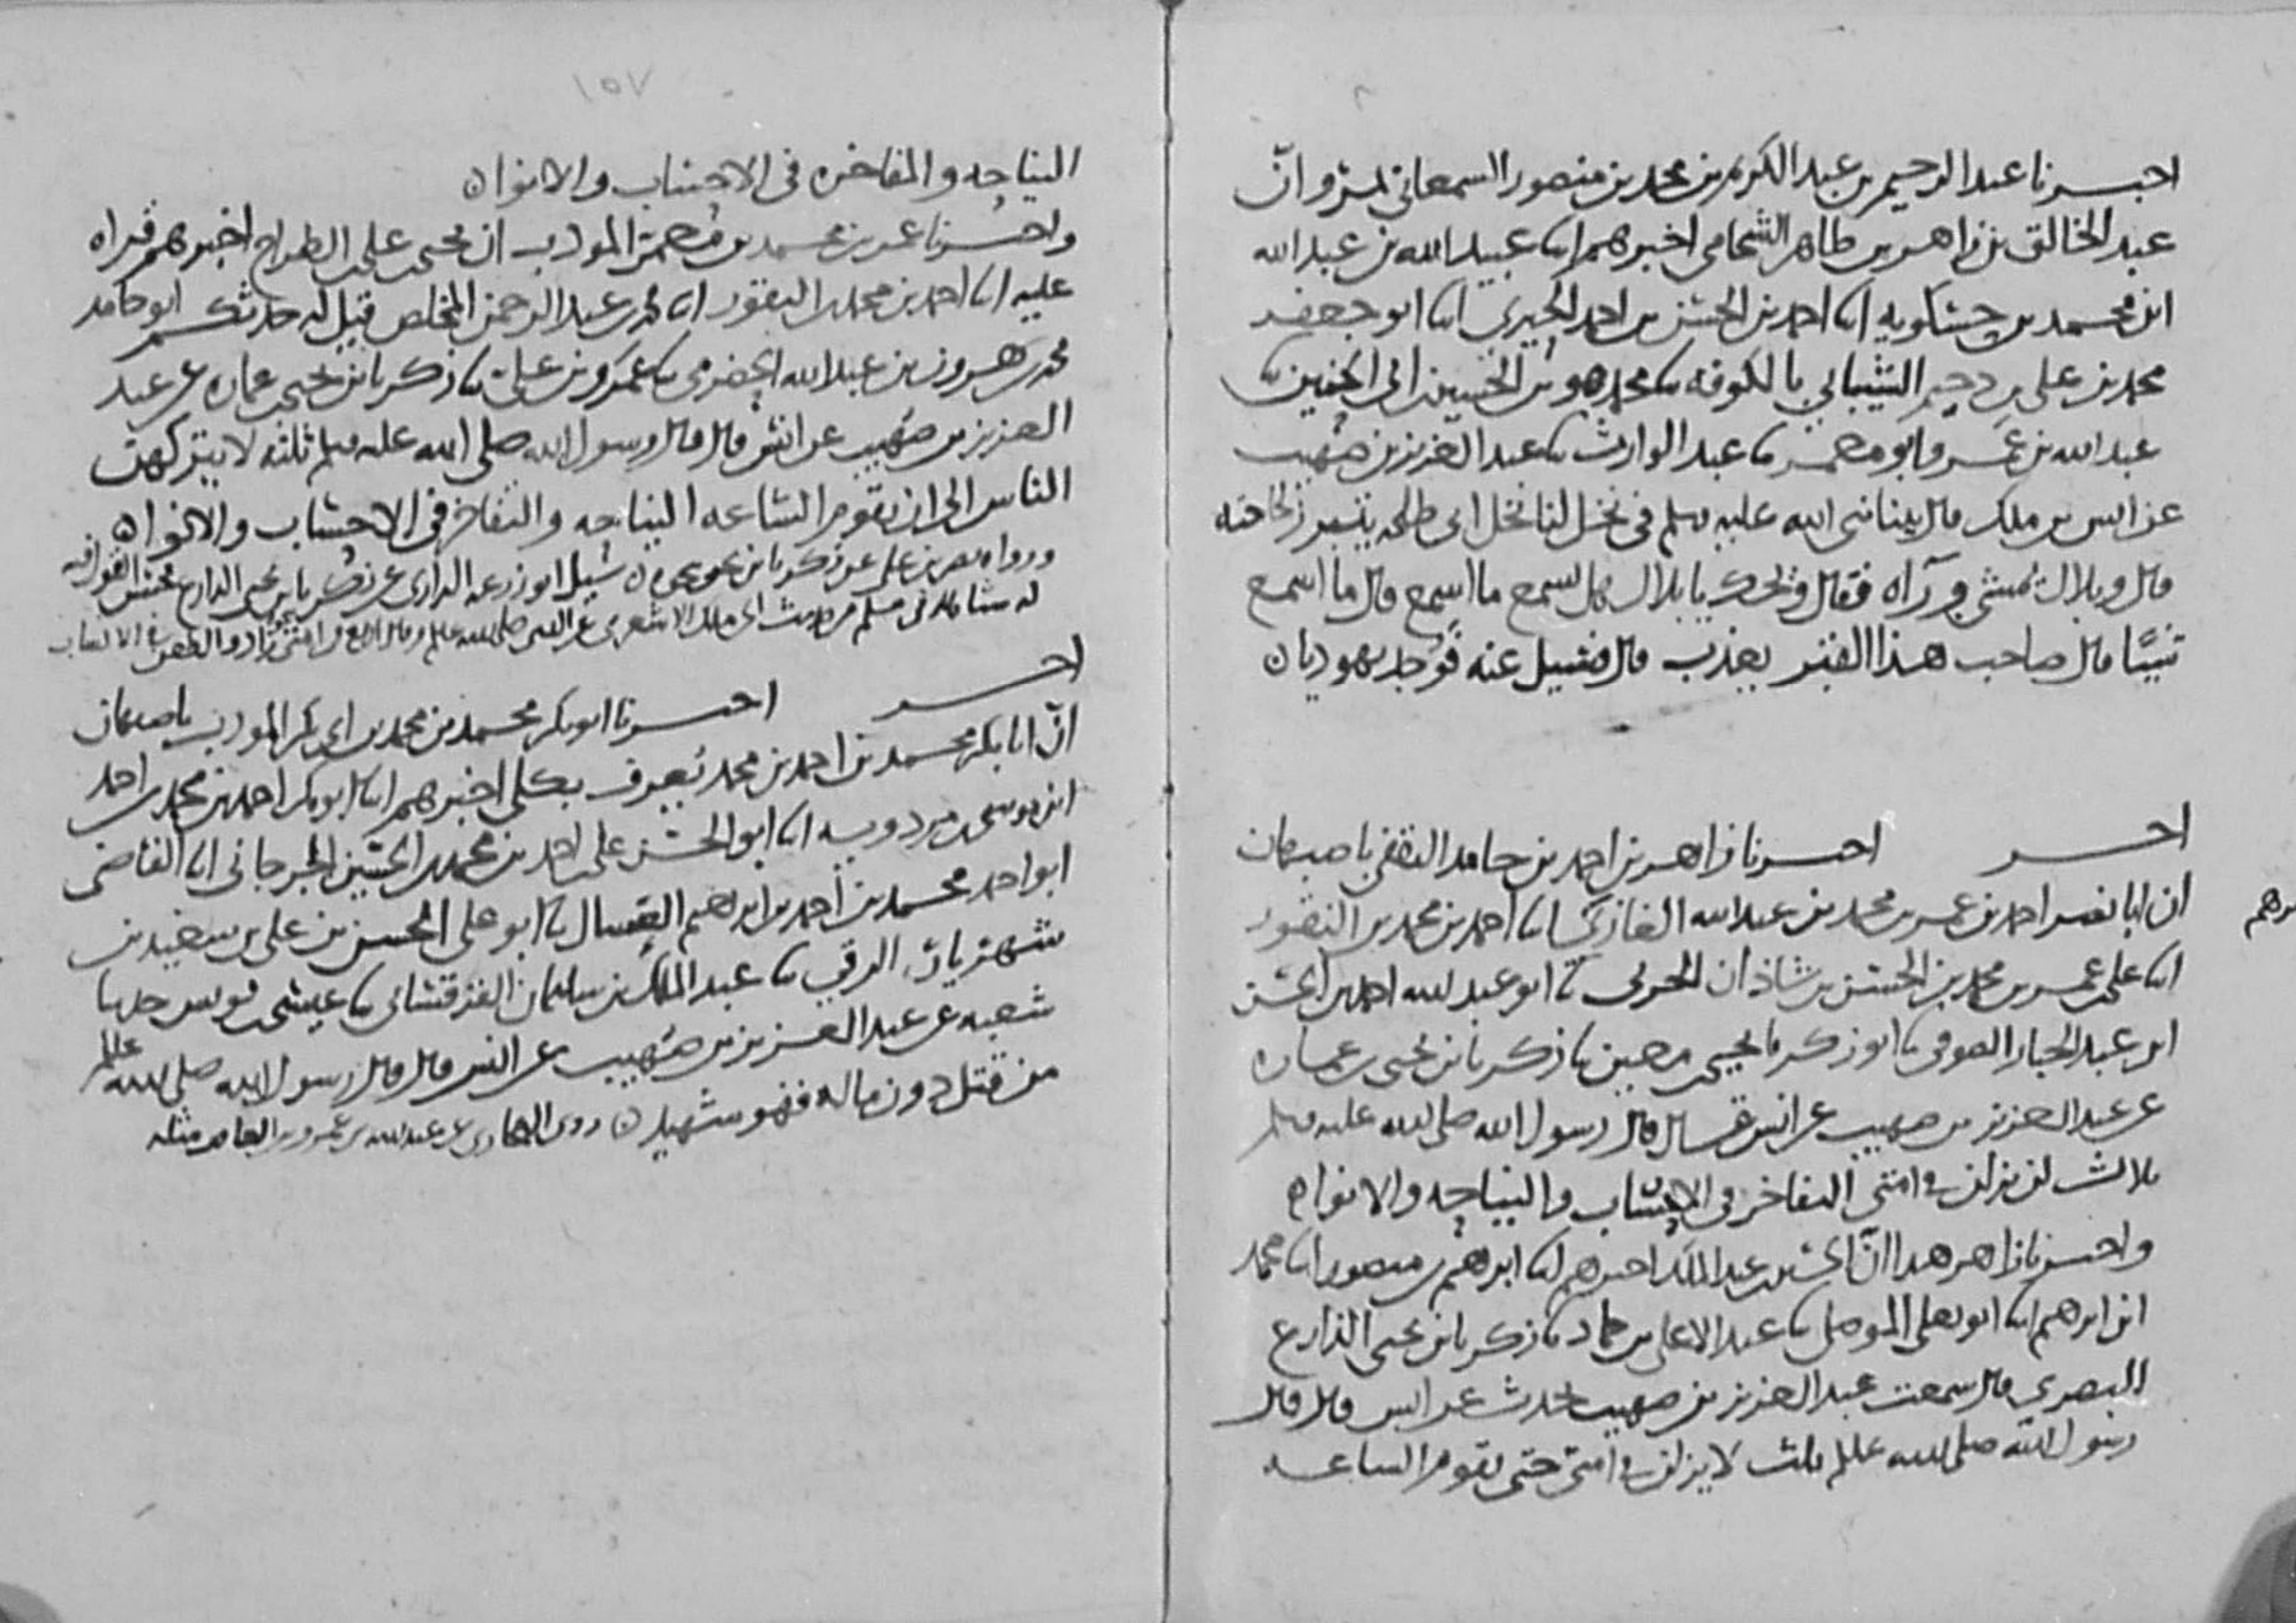 اخبرنا عبد الرحيم بن عبد الكريم بن محمد بن منصور السمعاني بمرو ان
عبد الخالق بن زاهر بن طاهر الشحامي اخبرهم ابنا عبيد الله بن عبد الله
ابن محمد بن حسكويه ابنا احمد بن الحسن بن احمد الحيري ابنا ابو جعفر
محمد بن علي بن دحيم الشيباني بالكوفه ثنا محمد هو بن الحسين ابن ابي الحنين ثنا
عبد الله بن عمرو ابو معمر ثنا عبد الوارث ثنا عبد العزيز بن صهيب
عن انس بن ملك قال بينا نبي الله عليه وسلم في نخل لنا نخل ابي طلحه يتبرز لحاجته
قال وبلال يمشي ورآه فقال ويحك يا بلال هل تسمع ما اسمع قال ما اسمع
شيئا قال صاحب هذا القبر يعذب قال فسيل عنه فوجد يهوديا ن
اخر
اخبرنا زاهر بن احمد بن حامد الثقفي باصبهان
ان ابا نصر احمد بن عمر بن محمد بن عبد الله الغازي ابنا احمد بن محمد بن النقور
ابنا علي بن عمر بن محمد بن الحسن بن شاذان الحربي ثنا ابو عبد الله احمد بن الحسن
ابن عبد الجبار الصوفي ثنا ابو زكريا يحيى بن معين ثنا زكريا بن يحيى بن عماره
عن عبد العزيز بن صهيب عن انس قال قال رسول الله صلى الله عليه وسلم
ثلاث لن يزلن في امتي التفاخر في الاحساب والنياحه والانواء
واخبرنا زاهر هذا ان الحسين بن عبد الملك اخبرهم ابنا ابرهيم بن منصور ابنا محمد
ابن ابرهيم ابنا ابو يعلى الموصلي ثنا عبد الاعلى بن حماد ثنا زكريا بن يحيى الذارع
البصري قال سمعت عبد العزيز بن صهيب يحدث عن انس قال قال
رسول الله صلى الله عليه وسلم ثلث لا يزلن في امتي حتى تقوم الساعه
١٥٧
النياحه والمفاخره في الاحساب والانواء ن
واخبرنا عمر بن محمد بن معمر المودب ان يحيى بن علي الطراح اخبرهم قراه
عليه ابنا احمد بن محمد بن النقور ابنا محمد بن عبد الرحمن المخلص قيل له حدثكم ابو حامد
محمد بن هرون بن عبد الله الحضرمي ثنا عمرو بن علي ثنا زكريا بن يحيى بن عماره عن عبد
العزيز بن صهيب عن انس قال قال رسول الله صلى الله عليه وسلم ثلثه لا يتركهن
الناس الى ان تقوم الساعه النياحه والتفاخر في الاحساب والانواء
ورواه نصر بن علي عن زكريا بن يحيى سيل ابو زرعه الرازي عن زكريا بن يحيى الذارع فحسن القول فيه
له شاهد في مسلم من حديث ابي ملك الاشعري عن النبي صلى الله عليه وسلم وقال اربع في امتي وزاد والطعن في الانساب
اخر
اخبرنا ابو بكر محمد بن محمد بن ابي بكر المودب باصبهان
ان ابا بكر محمد بن احمد بن محمد يعرف بكلي اخبرهم ابنا ابو بكر احمد بن محمد بن احمد
ابن موسى بن مردويه ابنا ابو الحسن علي بن احمد بن محمد بن الحسين الجرجاني ابنا القاضي
ابو احمد محمد بن احمد بن ابرهيم العسال ثنا ابو علي الحسن بن علي بن سعيد بن
شهريار الرقي ثنا عبد الملك بن سليمان القرقساني ثنا عيسى بن يونس حدثنا
شعبه عن عبد العزيز بن صهيب عن انس قال قال رسول الله صلى الله عليه وسلم
من قتل دون ماله فهو شهيد ن روى البخاري عن عبد الله بن عمرو بن العاص مثله